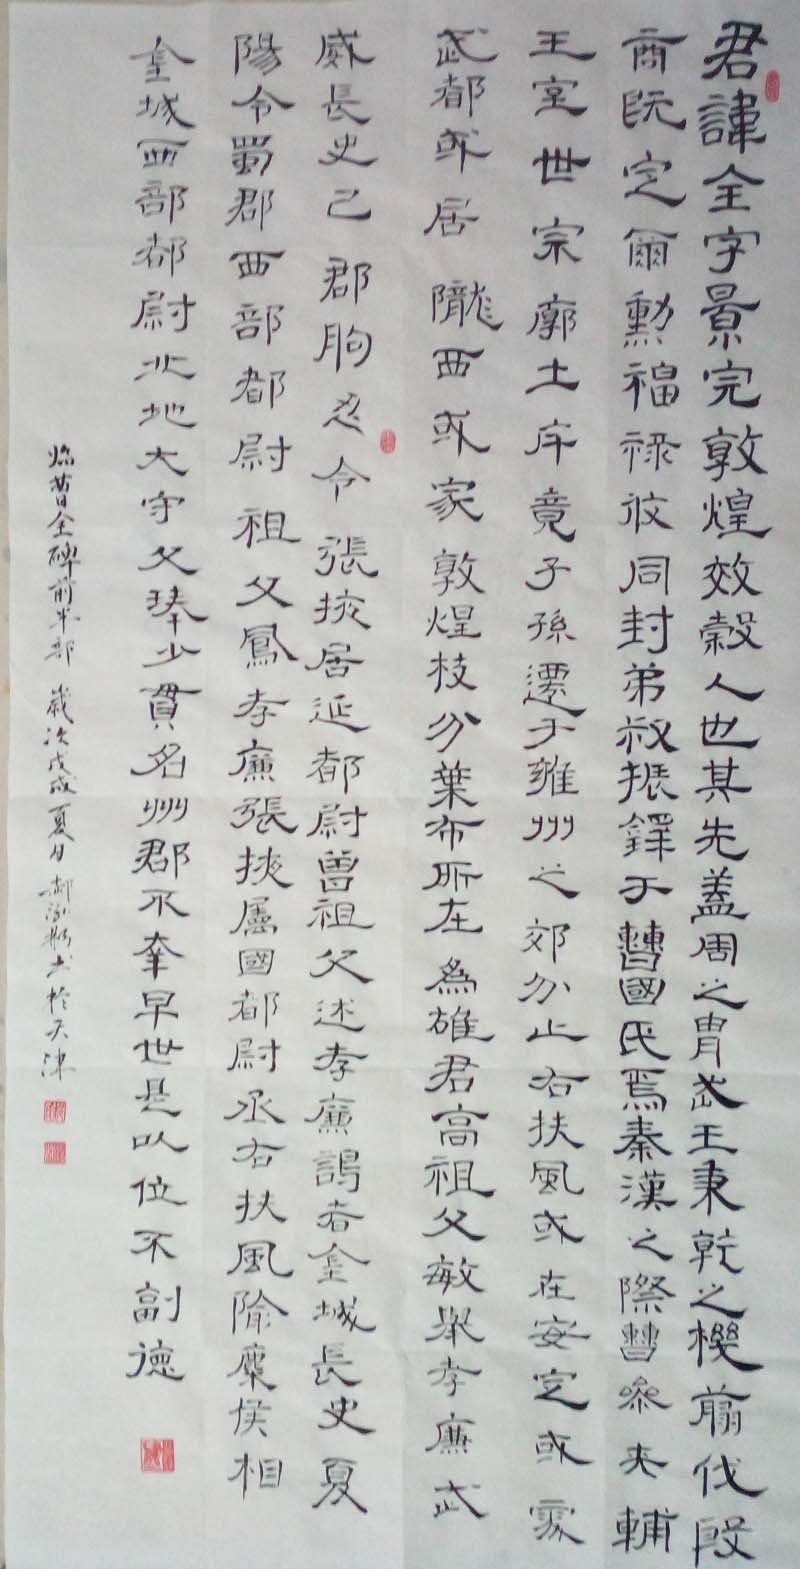 君諱全字景完敦煌效穀人也其先蓋周之冑武王秉乾之機翦伐殷
商既定爾勳福祿攸同封弟叔振鐸于曹國氏焉秦漢之際曹參夾輔
王室世宗廓土斥竟子孫遷于雍州之郊分止右扶風或在安定或處
武都或居隴西或家敦煌枝分葉布所在為雄君高祖父敏舉孝廉武
威長史巳郡朐忍令張掖居延都尉曾祖父述孝廉謁者金城長史夏
陽令蜀郡西部都尉祖父鳳孝廉張掖屬國都尉丞右扶風隃麋侯相
金城西部都尉北地大守父琫少貫名州郡不幸早世是以位不副德
臨曹全碑前半部 歲次戊戌夏月 書於天津